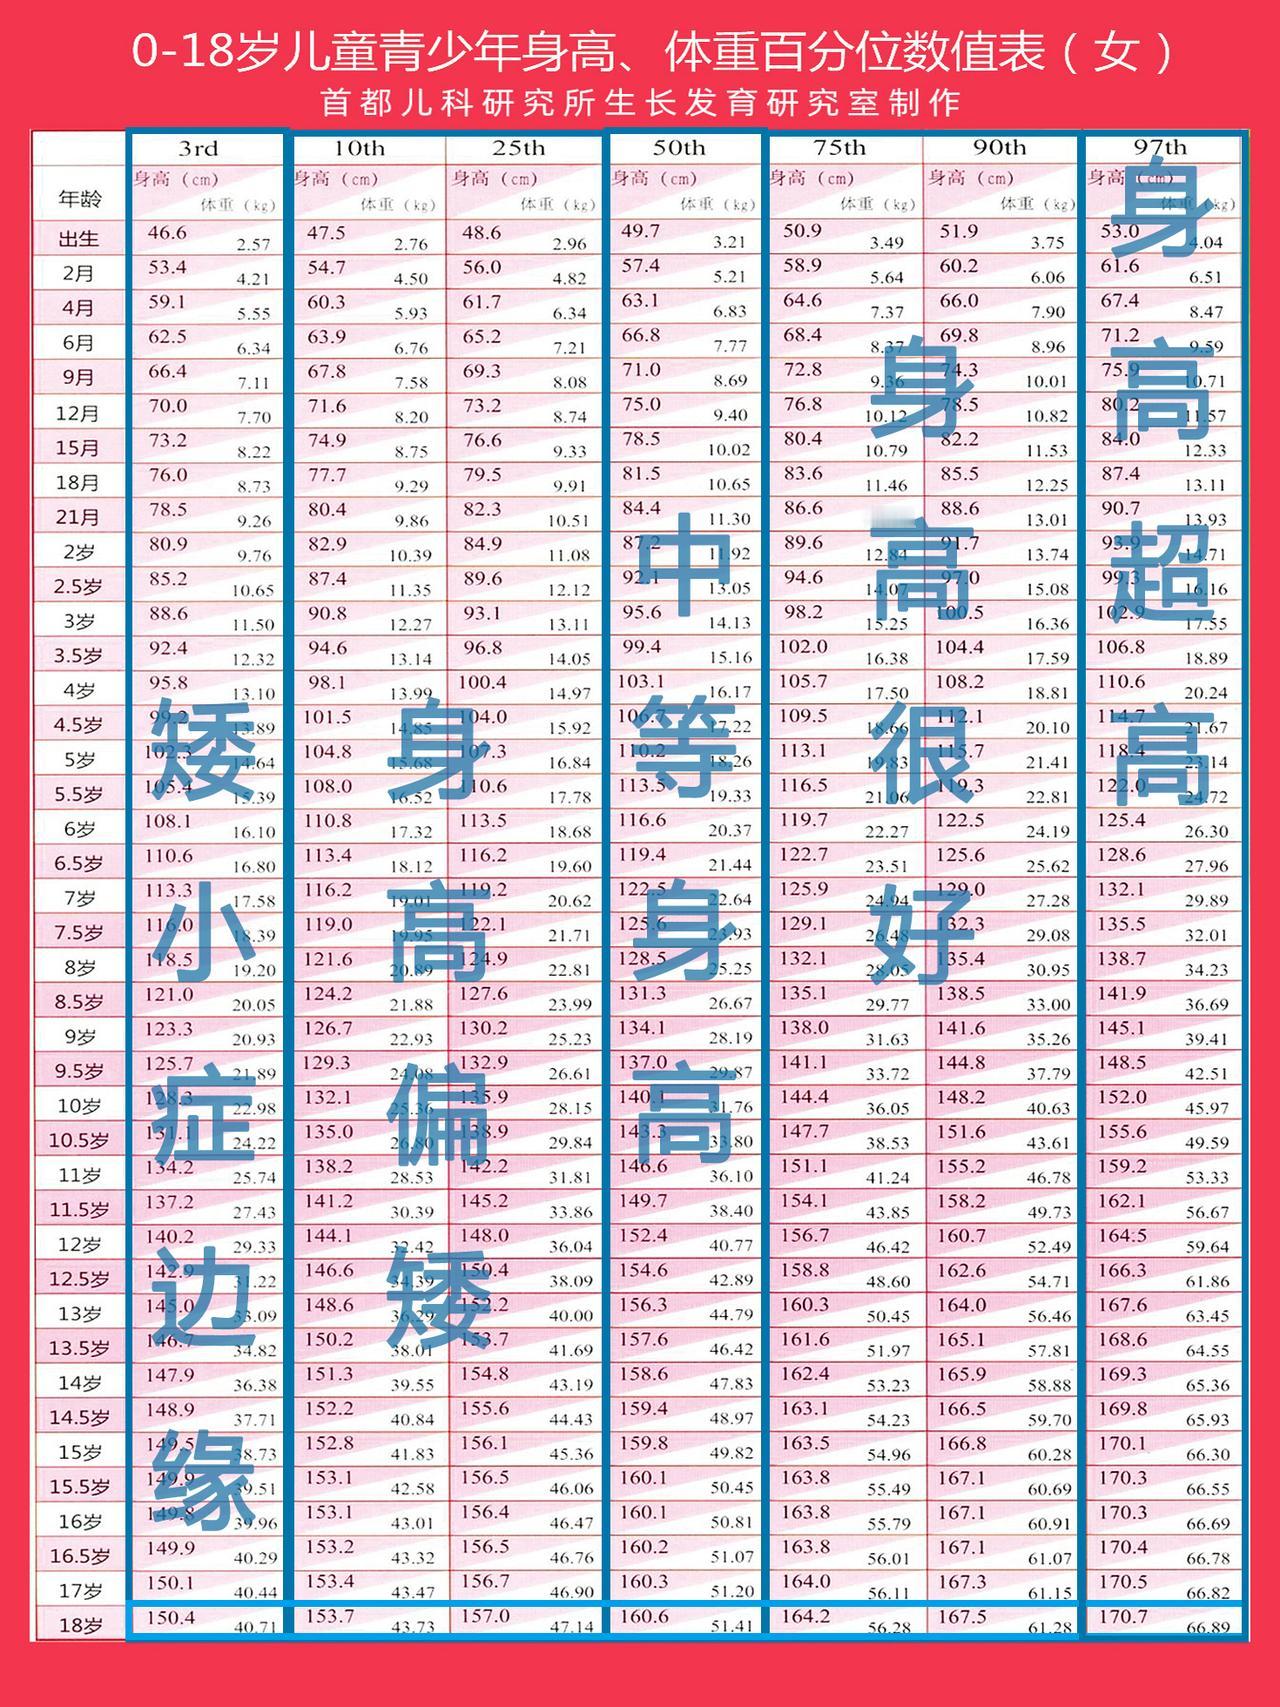 0-18岁儿童青少年身高、体重百分位数值表（女）
首都儿科研究所生长发育研究室制作
3rd 10th 25th 50th 75th 90th 97th
年龄 身高（cm） 体重（kg） 身高（cm） 体重（kg） 身高（cm） 体重（kg） 身高（cm） 体重（kg） 身高（cm） 体重（kg） 身高（cm） 体重（kg） 身高（cm） 体重（kg）
出生 46.6 2.57 47.5 2.76 48.6 2.96 49.7 3.21 50.9 3.49 51.9 3.75 53.0 4.04
2月 53.4 4.21 54.7 4.50 56.0 4.82 57.4 5.21 58.9 5.64 60.2 6.06 61.6 6.51
4月 59.1 5.55 60.3 5.93 61.7 6.34 63.1 6.83 64.6 7.37 66.0 7.90 67.4 8.47
6月 62.5 6.34 63.9 6.76 65.2 7.21 66.8 7.77 68.4 8.37 69.8 8.96 71.2 9.59
9月 66.4 7.11 67.8 7.58 69.3 8.08 71.0 8.69 72.8 9.36 74.3 10.01 75.9 10.71
12月 70.0 7.70 71.6 8.20 73.2 8.74 75.0 9.40 76.8 10.12 78.5 10.82 80.2 11.57
15月 73.2 8.22 74.9 8.75 76.6 9.33 78.5 10.02 80.4 10.79 82.2 11.53 84.0 12.33
18月 76.0 8.73 77.7 9.29 79.5 9.91 81.5 10.65 83.6 11.46 85.5 12.25 87.4 13.11
21月 78.5 9.26 80.4 9.86 82.3 10.51 84.4 11.30 86.6 88.6 13.01 90.7 13.93
2岁 80.9 9.76 82.9 10.39 84.9 11.08 87.2 11.92 89.6 12.84 91.7 13.74 93.9 14.71
2.5岁 85.2 10.65 87.4 11.35 89.6 12.12 92.1 13.05 94.6 14.07 97.0 15.08 99.3 16.16
3岁 88.6 11.50 90.8 12.27 93.1 13.11 95.6 14.13 98.2 15.25 100.5 16.36 102.9 17.55
3.5岁 92.4 12.32 94.6 13.14 96.8 14.05 99.4 15.16 102.0 16.38 104.4 17.59 106.8 18.89
4岁 95.8 13.10 98.1 13.99 100.4 14.97 103.1 16.17 105.7 17.50 108.2 18.81 110.6 20.24
4.5岁 99.2 13.89 101.5 14.85 104.0 15.92 106.7 17.22 109.5 18.66 112.1 20.10 114.7 21.67
5岁 102.3 14.64 104.8 15.68 107.3 16.84 110.2 18.26 113.1 19.83 115.7 21.41 118.4 23.14
5.5岁 105.4 15.39 108.0 16.52 110.6 17.78 113.5 19.33 116.5 21.06 119.3 22.81 122.0 24.72
6岁 108.1 16.10 110.8 17.32 113.5 18.68 116.6 20.37 119.7 22.27 122.5 24.19 125.4 26.30
6.5岁 110.6 16.80 113.4 18.12 116.2 19.60 119.4 21.44 122.7 23.51 125.6 25.62 128.6 27.96
7岁 113.3 17.58 116.2 19.01 119.2 20.62 122.5 22.64 125.9 24.94 129.0 27.28 132.1 29.89
7.5岁 116.0 18.39 119.0 19.95 122.1 21.71 125.6 23.93 129.1 26.48 132.3 29.08 135.5 32.01
8岁 118.5 19.20 121.6 20.89 124.9 22.81 128.5 25.25 132.1 28.05 135.4 30.95 138.7 34.23
8.5岁 121.0 20.05 124.2 21.88 127.6 23.99 131.3 26.67 135.1 29.77 138.5 33.00 141.9 36.69
9岁 123.3 20.93 126.7 22.93 130.2 25.23 134.1 28.19 138.0 31.63 141.6 35.26 145.1 39.41
9.5岁 125.7 21.89 129.3 24.08 132.9 26.61 137.0 29.87 141.1 33.72 144.8 37.79 148.5 42.51
10岁 128.3 22.98 132.1 25.36 135.9 28.15 140.1 31.76 144.4 36.05 148.2 40.63 152.0 45.97
10.5岁 131.1 24.22 135.0 26.80 138.9 29.84 143.3 33.80 147.7 38.53 151.6 43.61 155.6 49.59
11岁 134.2 25.74 138.2 28.53 142.2 31.81 146.6 36.10 151.1 41.24 155.2 46.78 159.2 53.33
11.5岁 137.2 27.43 141.2 30.39 145.2 33.86 149.7 38.40 154.1 43.85 158.2 49.73 162.1 56.67
12岁 140.2 29.33 144.1 32.42 148.0 36.04 152.4 40.77 156.7 46.42 160.7 52.49 164:5 59.64
12.5岁 142.9 31.22 146.6 34.39 150.4 38.09 154.6 42.89 158.8 48.60 162.6 54.71 166.3 61.86
13岁 145.0 33.09 148.6 36.29 152.2 40.00 156.3 44.79 160.3 50.45 164.0 56.46 167.6 63.45
13.5岁 146.7 34.82 150.2 38.01 153.7 41.69 157.6 46.42 161.6 51.97 165.1 57.81 168.6 64.55
14岁 147.9 36.38 151.3 39.55 154.8 43.19 158.6 47.83 162.4 53.23 165.9 58.88 169.3 65.36
14.5岁 148.9 37.71 152.2 40.84 155.6 44.43 159.4 48.97 163.1 54.23 166.5 59.70 169.8 65.93
15岁 149.5 38.73 152.8 41.83 156.1 45.36 159.8 49.82 163.5 54.96 166.8 60.28 170.1 66.30
15.5岁 149.9 39.51 153.1 42.58 156.5 46.06 160.1 50.45 163.8 55.49 167.1 60.69 170.3 66.55
16岁 149.8 39.96 153.1 43.01 156.4 46.47 160.1 50.81 163.8 55.79 167.1 60.91 170.3 66.69
16.5岁 149.9 40.29 153.2 43.32 156.5 46.76 160.2 51.07 163.8 56.01 167.1 61.07 170.4 66.78
17岁 150.1 40.44 153.4 43.47 156.7 46.90 160.3 51.20 164.0 56.11 167.3 61.15 170.5 66.82
18岁 150.4 40.71 153.7 43.73 157.0 47.14 160.6 51.41 164.2 56.28 167.5 61.28 170.7 66.89
矮小症边缘
身高偏矮
中等身高
身高很好
身高超高